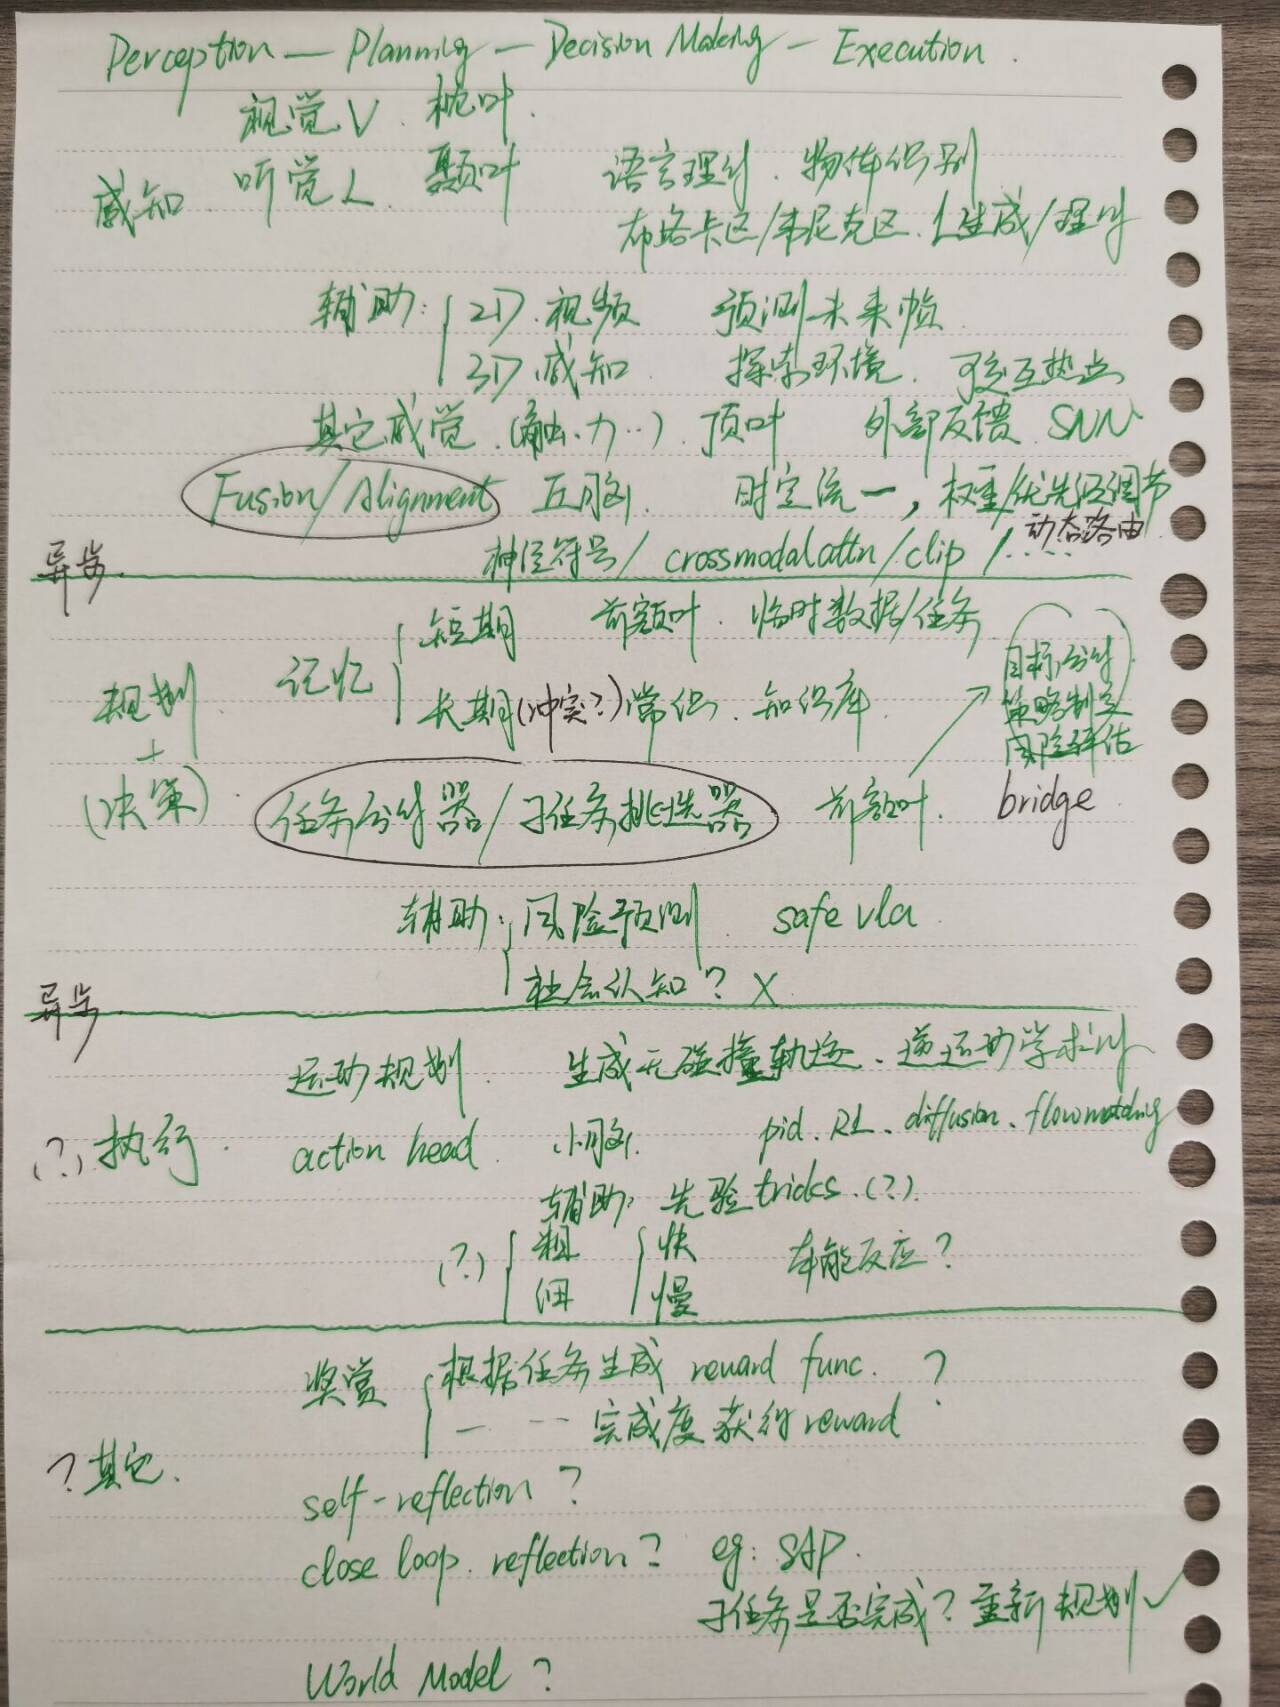 Perception — Planning — Decision Making — Execution.
视觉 V. 枕叶.
感知. 听觉 L. 颞叶 语言理解. 物体识别
布洛卡区/韦尼克区. L生成/理解
辅助: 2D. 视频 预测未来帧.
3D. 感知. 探索环境. 可交互热点
其它感觉.(触.力..). 顶叶 外部反馈. SNN
Fusion/Alignment 丘脑. 时空统一, 权重/优先级调节
动态路由
异步. 神经符号/crossmodal attn/clip/......
短期 前额叶. 临时数据/任务
规划 记忆 目标分解
长期(冲突?)常识. 知识库. 策略制定
+ 风险评估
(决策) 任务分解器/子任务挑选器 前额叶. bridge
辅助: 风险预测 safe vla.
社会认知? X
异步.
运动规划. 生成无碰撞轨迹. 逆运动学求解
(?) 执行. action head. 小脑. pid. RL. diffusion. flowmatching
辅助: 先验tricks.(?).
(?) 粗 快 本能反应?
细 慢
奖赏 根据任务生成 reward func. ?
— --- 完成度获得reward
? 其它.
self-reflection ?
close loop. reflection? eg: SAP.
子任务是否完成? 重新规划✓
World Model ?